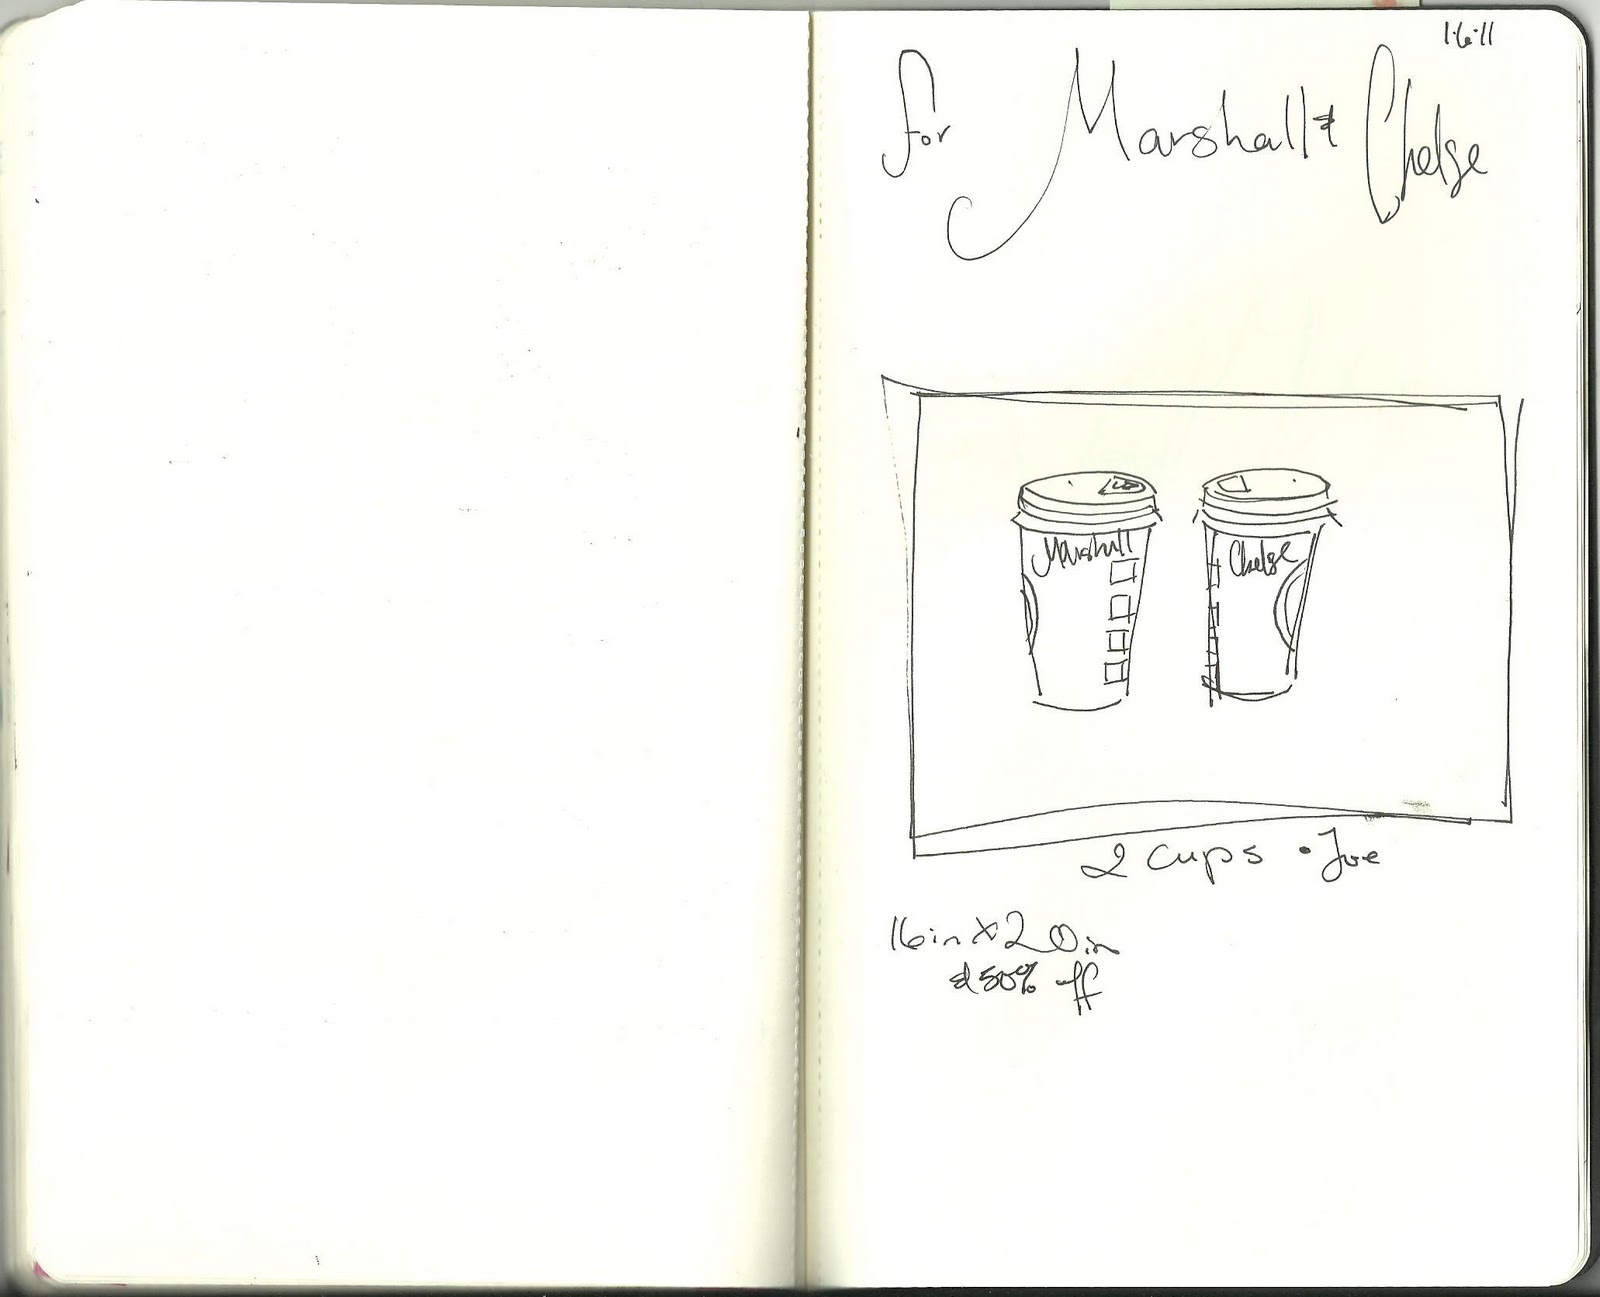 1·6·11
for Marshall & Chelse
Marshall
Chelse
2 cups • Joe
16in x 20in
& 50% off